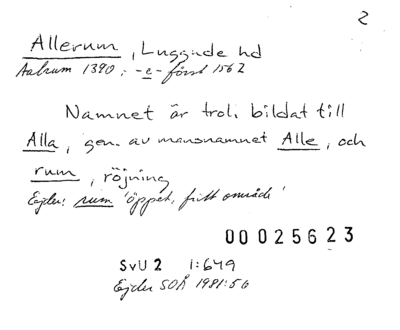 2
Allerum, Luggude hd
Aalrum 1390; -e- först 1562
Namnet är trol. bildat till
Alla, gen. av mansnamnet Alle, och
rum, röjning
Ejder: rum 'öppet, fritt område'
00025623
SvU 2 1:649
Ejder SOÅ 1981:56